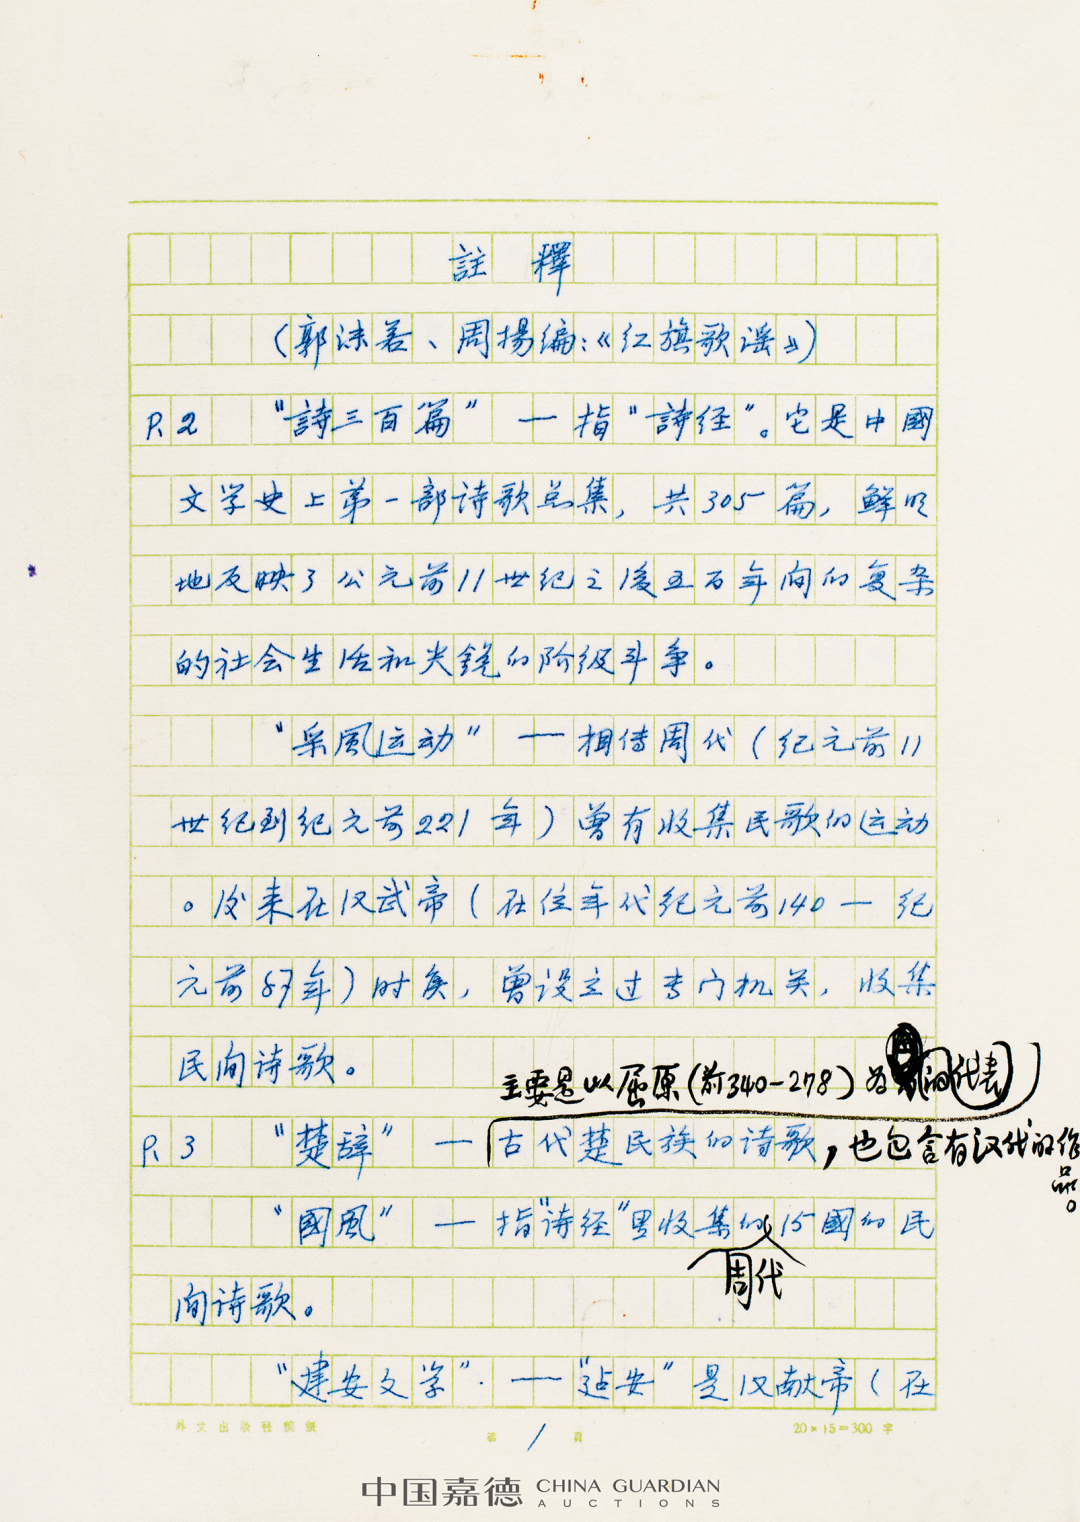 註釋
（郭沫若、周揚编：《红旗歌谣》）
P.2 “詩三百篇” — 指“詩经”。它是中國
文学史上第一部诗歌总集，共305篇，鲜明
地反映了公元前11世纪之後五百年间的复杂
的社会生活和尖銳的阶级斗争。
“采風运动” — 相传周代（纪元前11
世纪到纪元前221年）曾有收集民歌的运动
。后来在汉武帝（在位年代纪元前140—纪
元前87年）时候，曾设立过专门机关，收集
民间诗歌。
主要是以屈原（前340-278）为的代表
P.3 “楚辞” — 古代楚民族的诗歌，也包含有汉代的作
品。
“國風” — 指“诗经”里收集的15國的民
周代
间诗歌。
“建安文学”. — “建安”是汉献帝（在
外文出版社稿紙
第1頁
20×15=300字
中国嘉德 CHINA GUARDIAN
AUCTIONS